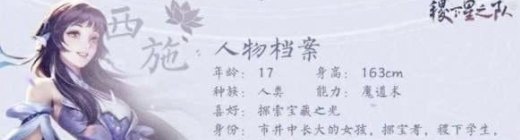 西施
稷下星之队
人物档案
年龄：17 身高：163cm
种族：人类 能力：魔道术
喜好：探索宝藏之光
身份：市井中长大的女孩，探宝者，稷下学生，